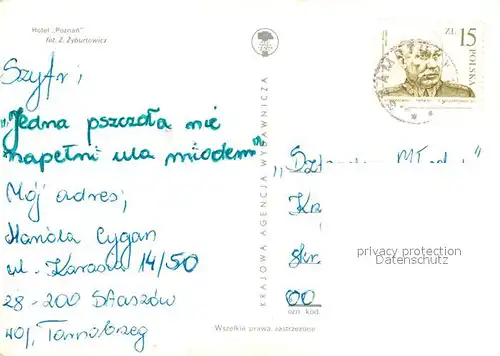 Hotel „Poznań"
fot. Z. Żyburtowicz
Szyfr;
„Jedna pszczoła nie
napełni ula miodem".
Mój adres;
Mariola Cygan
ul. Karasia 14/50
28-200 Staszów
woj. Tarnobrzeg
KRAJOWA AGENCJA WYDAWNICZA
Wszelkie prawa zastrzeżone
ZŁ 15
POLSKA
Kr
skr.
00
ozn. kod.
privacy protection
Datenschutz